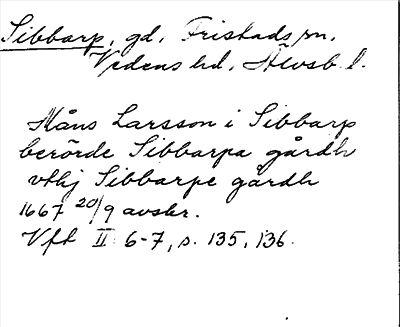 Sibbarp, gd, Fristads sn,
Vedens hd, Älvsb. l.
Måns Larsson i Sibbarp
berörde Sibbarpa gårdh
vthj Sibbarpe gårdh
1667 20/9 avskr.
Vft II 6-7, s. 135, 136.